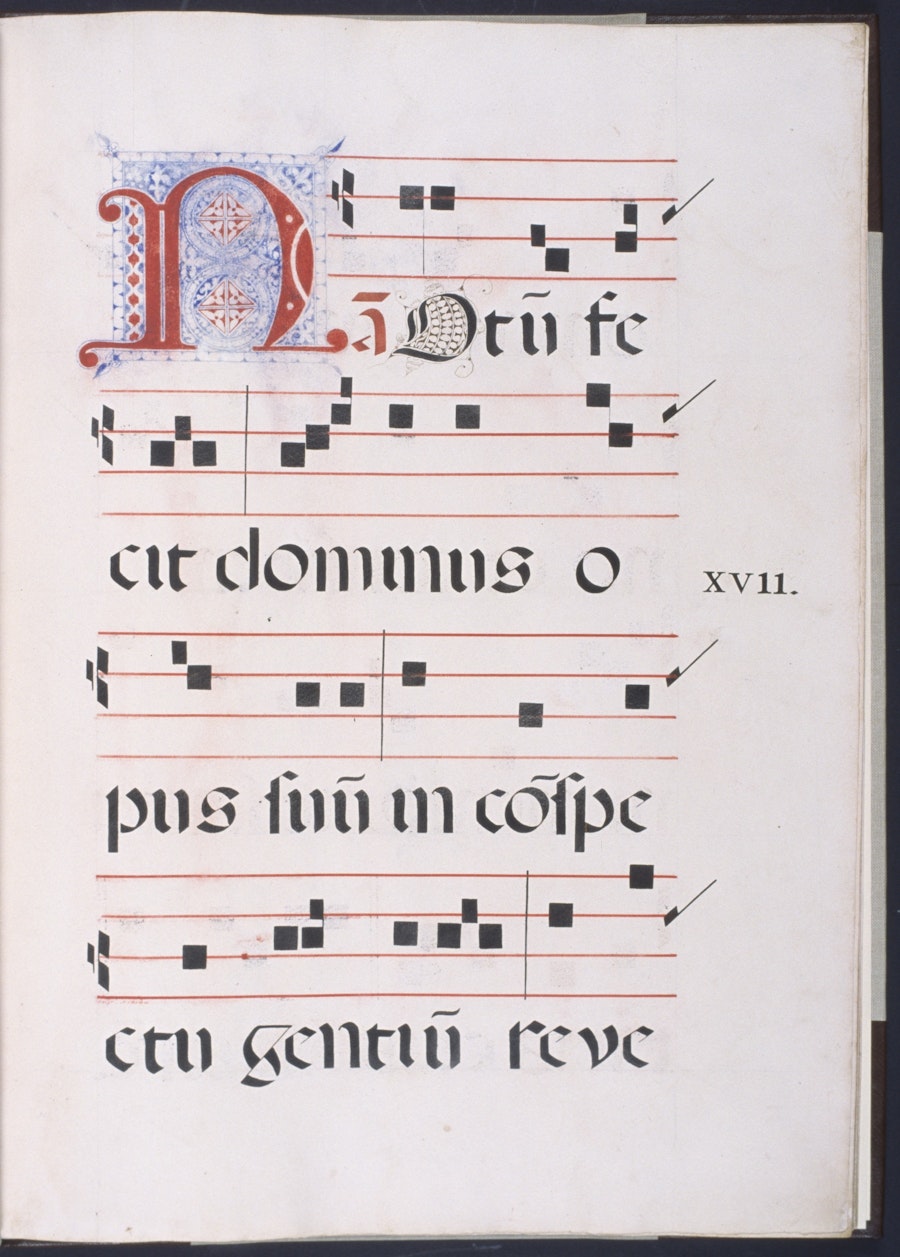 N ā Otū fe
cit dominus o
XVII.
pus ſuū in cōſpe
ctu gentiū reve